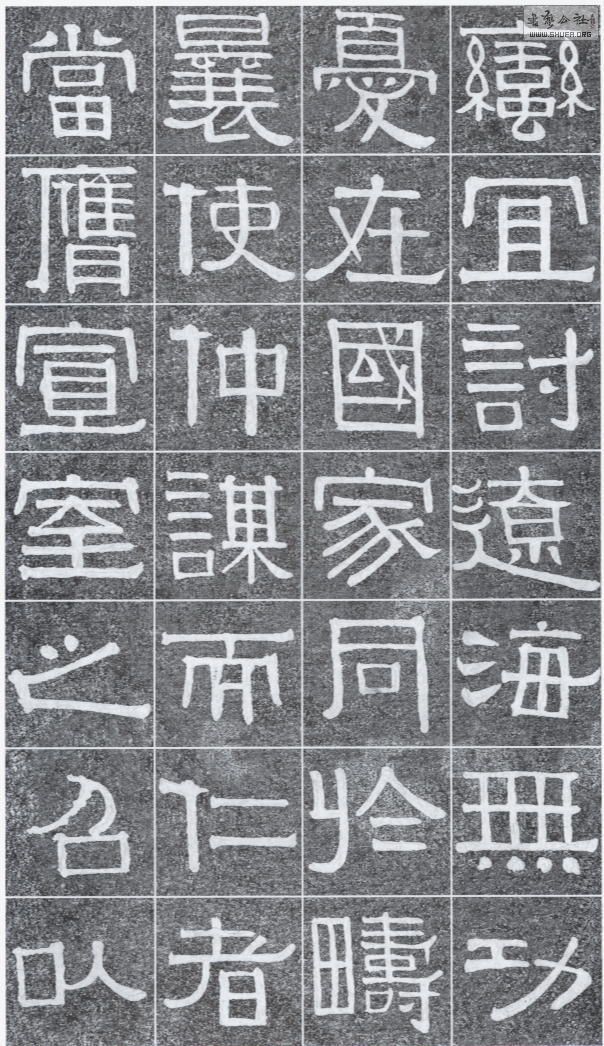 蠻宜討遼海無功
憂在國家同於疇
曩使仲謀而仁者
當膺宣室之召以
www.SHUFA.ORG